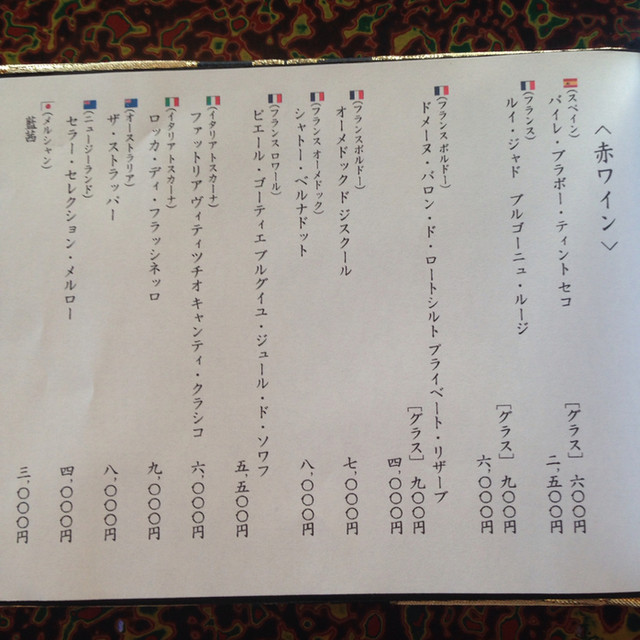 〈赤ワイン〉
(スペイン)
バイレ・ブラボー・ティントセコ
[グラス] 六〇〇円
二、五〇〇円
(フランス)
ルイ・ジャド ブルゴーニュ・ルージ
[グラス] 九〇〇円
六、〇〇〇円
(フランス ボルドー)
ドメーヌ・バロン・ド・ロートシルト プライベート・リザーブ
[グラス] 九〇〇円
四、〇〇〇円
(フランスボルドー)
オーメドック ド ジスクール
七、〇〇〇円
(フランス オーメドック)
シャトー・ベルナドット
八、〇〇〇円
(フランス ロワール)
ピエール・ゴーティエ ブルグイユ・ジュール・ド・ソワフ
五、五〇〇円
(イタリア トスカーナ)
ファットリア ヴィティツチオ キャンティ・クラシコ
六、〇〇〇円
(イタリア トスカーナ)
ロッカ・ディ・フラッシネッロ
九、〇〇〇円
(オーストラリア)
ザ・ストラッパー
八、〇〇〇円
(ニュージーランド)
セラー・セレクション・メルロー
四、〇〇〇円
(メルシャン)
三、〇〇〇円